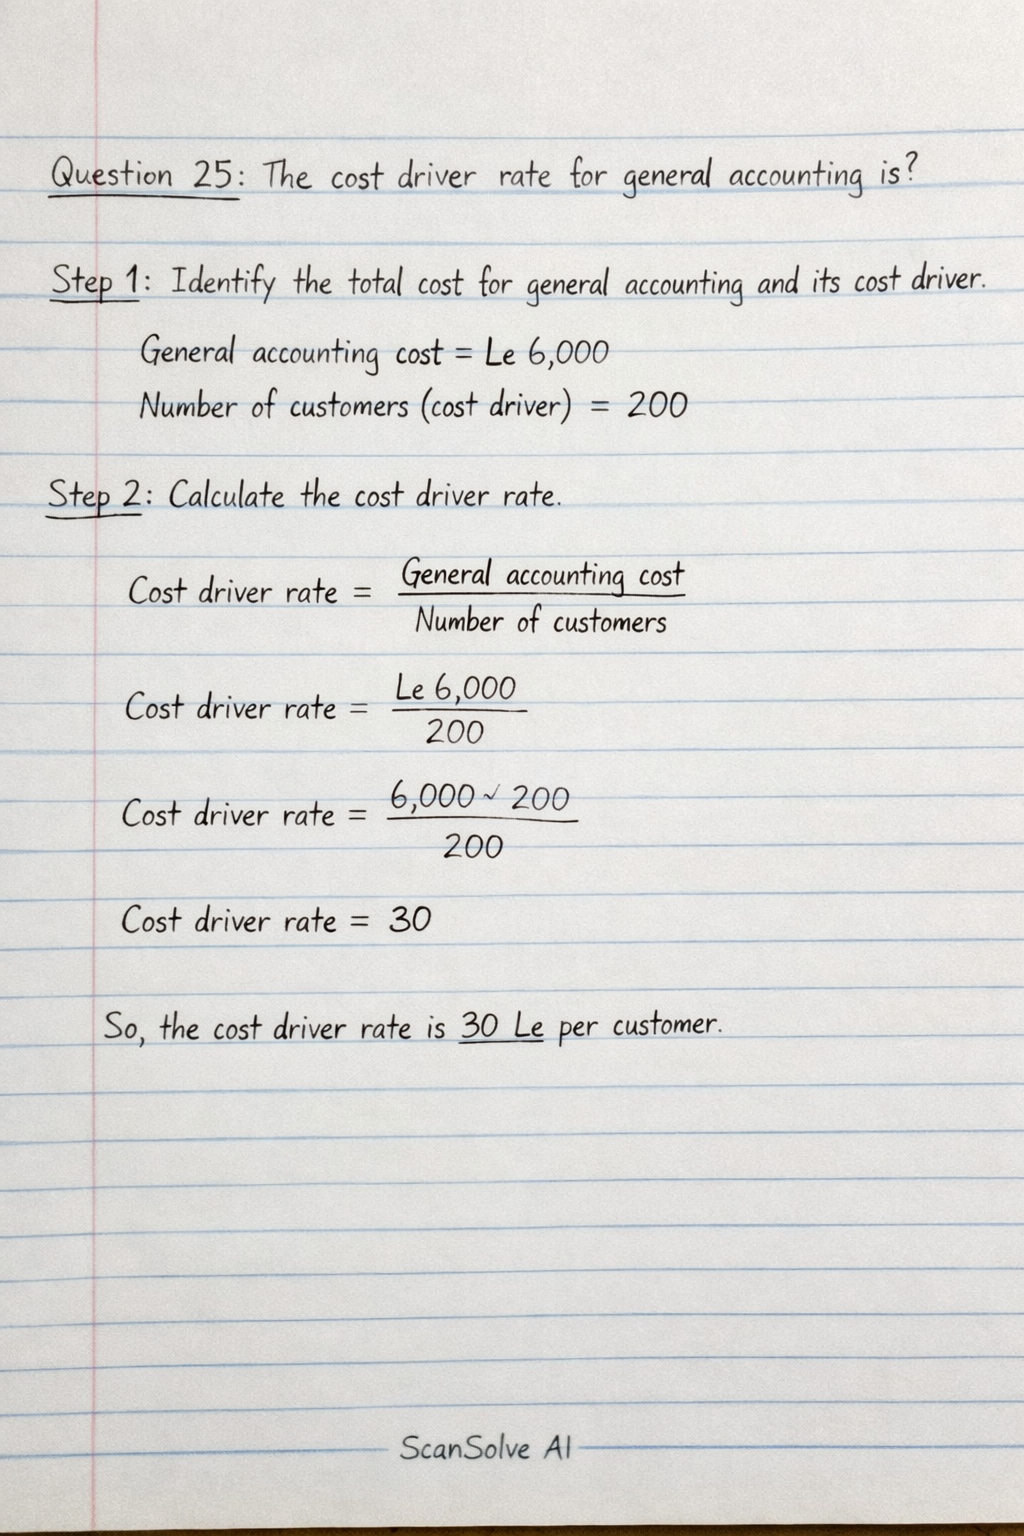 Question 25: The cost driver rate for general accounting is?
Step 1: Identify the total cost for general accounting and its cost driver.
General accounting cost = Le 6,000
Number of customers (cost driver) = 200
Step 2: Calculate the cost driver rate.
Cost driver rate = General accounting cost
Number of customers
Cost driver rate = Le 6,000
200
Cost driver rate = 6,000 ✓ 200
200
Cost driver rate = 30
So, the cost driver rate is 30 Le per customer.
ScanSolve AI